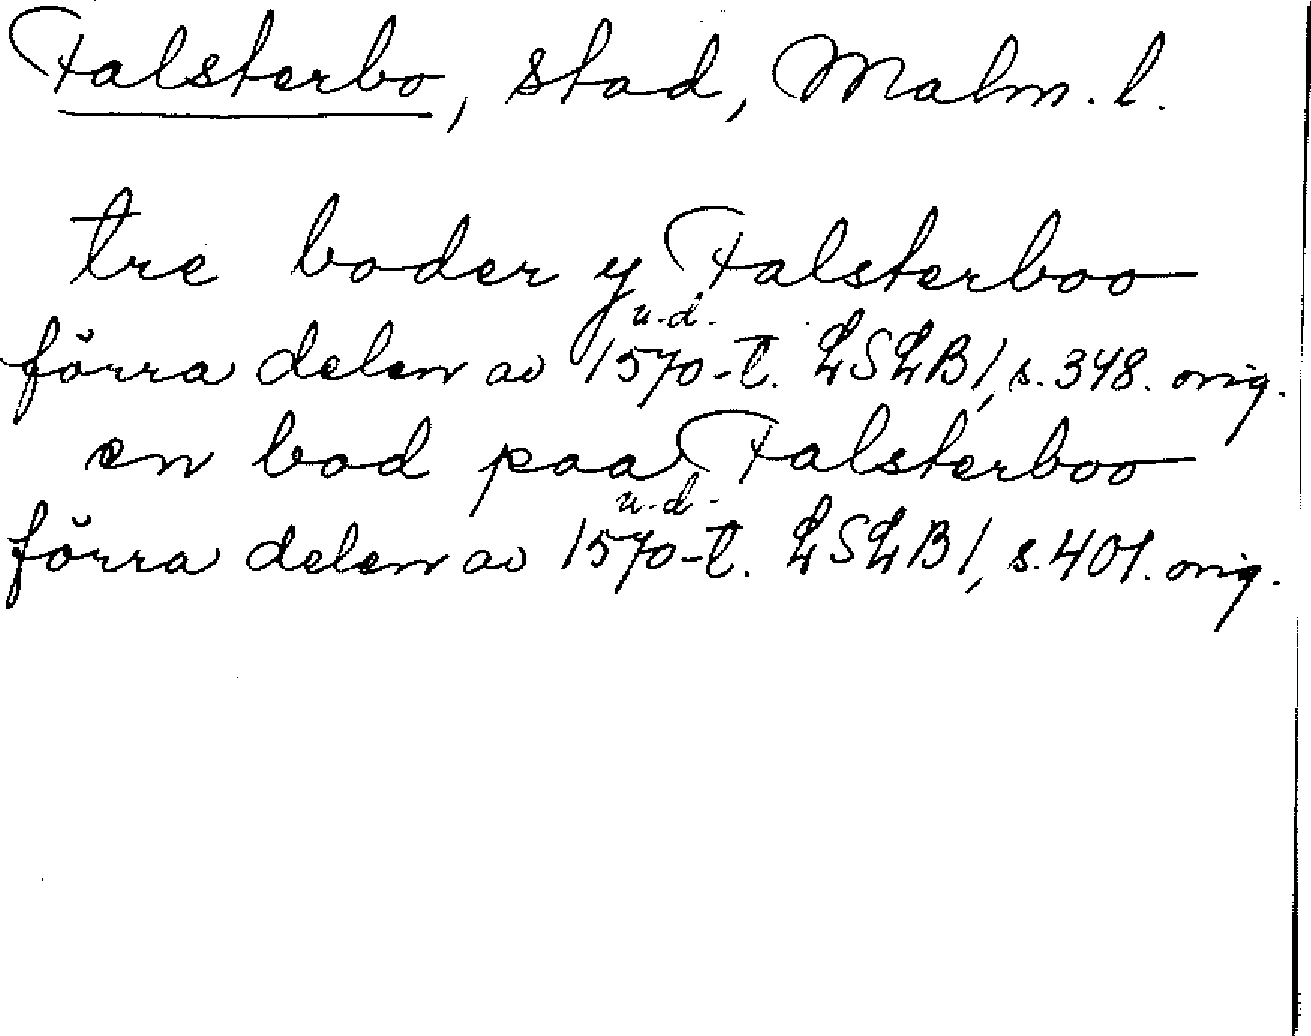 Falsterbo, stad, Malm. l.
tre boder y Falsterboo
u.d.
förra delen av 1570-t. LSLB I, s. 348. orig.
en bod paa Falsterboo
u.d.
förra delen av 1570-t. LSLB I, s. 401. orig.